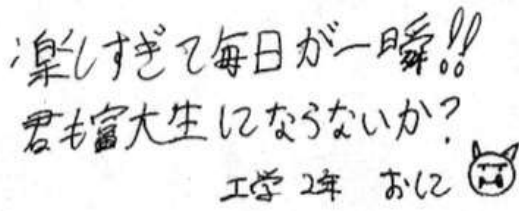 楽しすぎて毎日が一瞬!!
君も富大生にならないか?
工学2年 おに